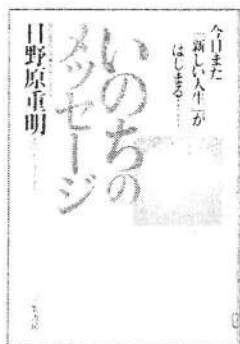 今日また
「新しい人生」が
はじまる……
いのちの
メッセージ
日野原重明